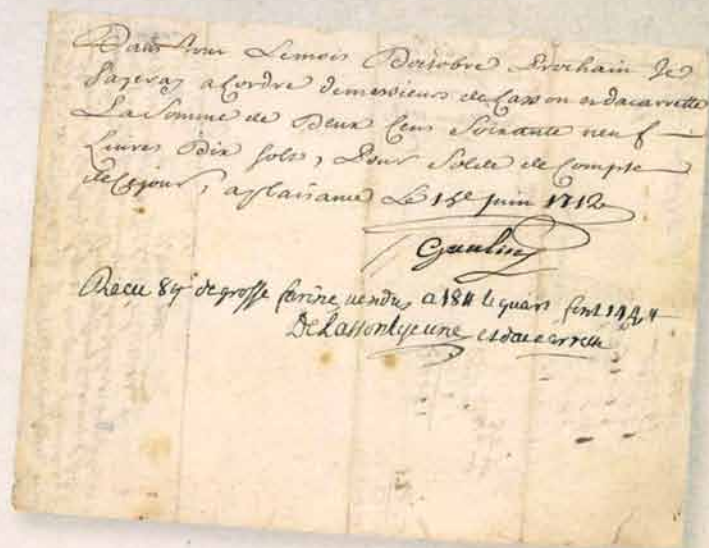 Dans tour Lemois Doctobre Prochain Je
Payeray a Lordre demessieurs de Lasson et dacarrette
La Somme de Deux Cens Soixante neuf
Livres Dix sols, Pour Solde de Compte
de Cejour, a plaisance Le 15e juin 1712
Gaulin
Recu 8q de grosse farine vendus a 18# le quart font 144#
De Lasson Lejeune et dacarrette